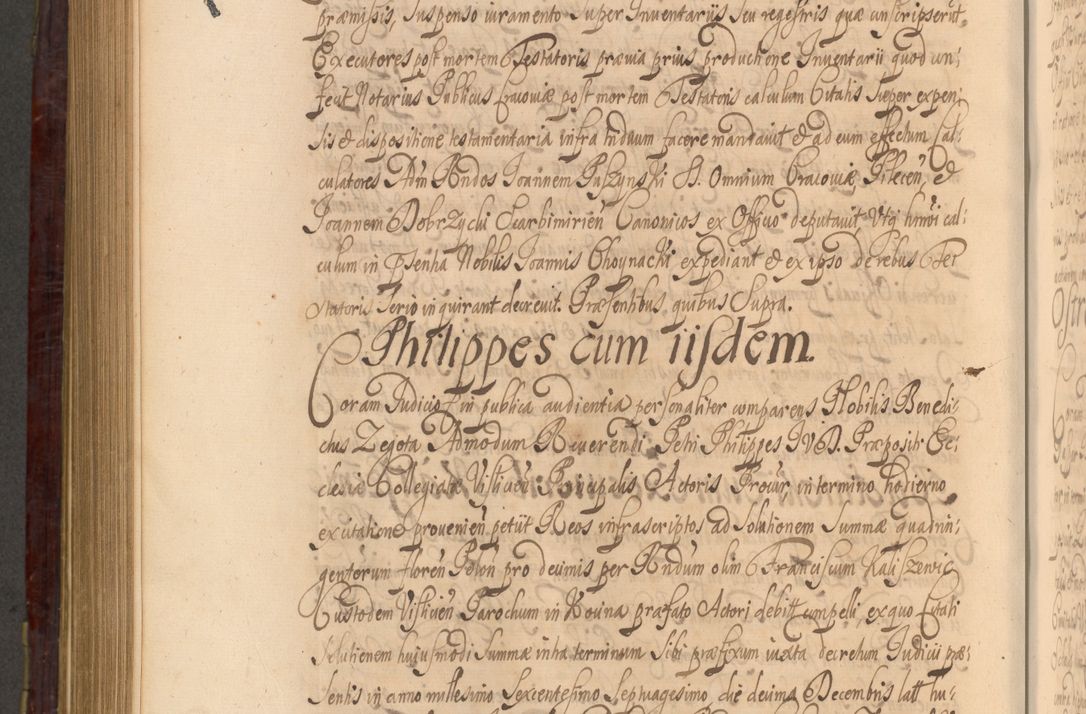 præmissis, Suspenso iuramento Super Inventariis seu regestris quæ conscripserūt
Executores post mortem Testatoris prævia prius productione Inventarii quod con:
fecit Notarius Publicus Cracoviæ post mortem Testatoris calculum Citatis Super expen:
sis et dispositione testamentaria infra triduum facere mandavit et ad eum effectum Cal:
culatores Adm Rndos Joannem Paszynski SS. Omnium Cracoviæ Pilecen, et
Joannem Dobrzycki Scarbimirien Canonicos ex Officio deputavit Utq hmōi cal:
culum in Psentia Nobilis Joannis Choynacki expediant et ex ipso de rebus Tes
tatoris Serio inquirant decrevit. Præsentibus quibus Supra.
Philippes cum iisdem.
Coram Judicio et in publica audientia personaliter comparens Nobilis Benedi:
ctus Zegota Admodum Reverendi Petri Philippes J.V.D. Præpositi Ec:
clesiæ Collegiatæ Vislicien Principalis Actoris Procur, in termino hodierno
ex citatione provenien petiit Reos infrascriptos ad Solutionem Summæ quadrin:
gentorum floren Polon pro decimis per Rndum olim Franciscum Kaliszewic
Custodem Vislicien Parochum in Kovina præfato Actori debitt compelli, ex quo Citati
Solutionem hujusmodi Summæ intra terminum Sibi præfixum iuxta decretum Judicii præ:
sentis in anno millesimo Sexcentesimo Septuagesimo die decima Decembris latt hu: